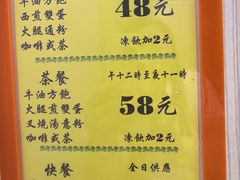 牛油方飽
西煎雙蛋
火腿通粉
咖啡或茶
48元
凍飲加2元
茶餐
午十二時至夜十一時
牛油方飽
火腿煎雙蛋
叉燒湯意粉
咖啡或茶
58元
凍飲加2元
快餐
全日供應